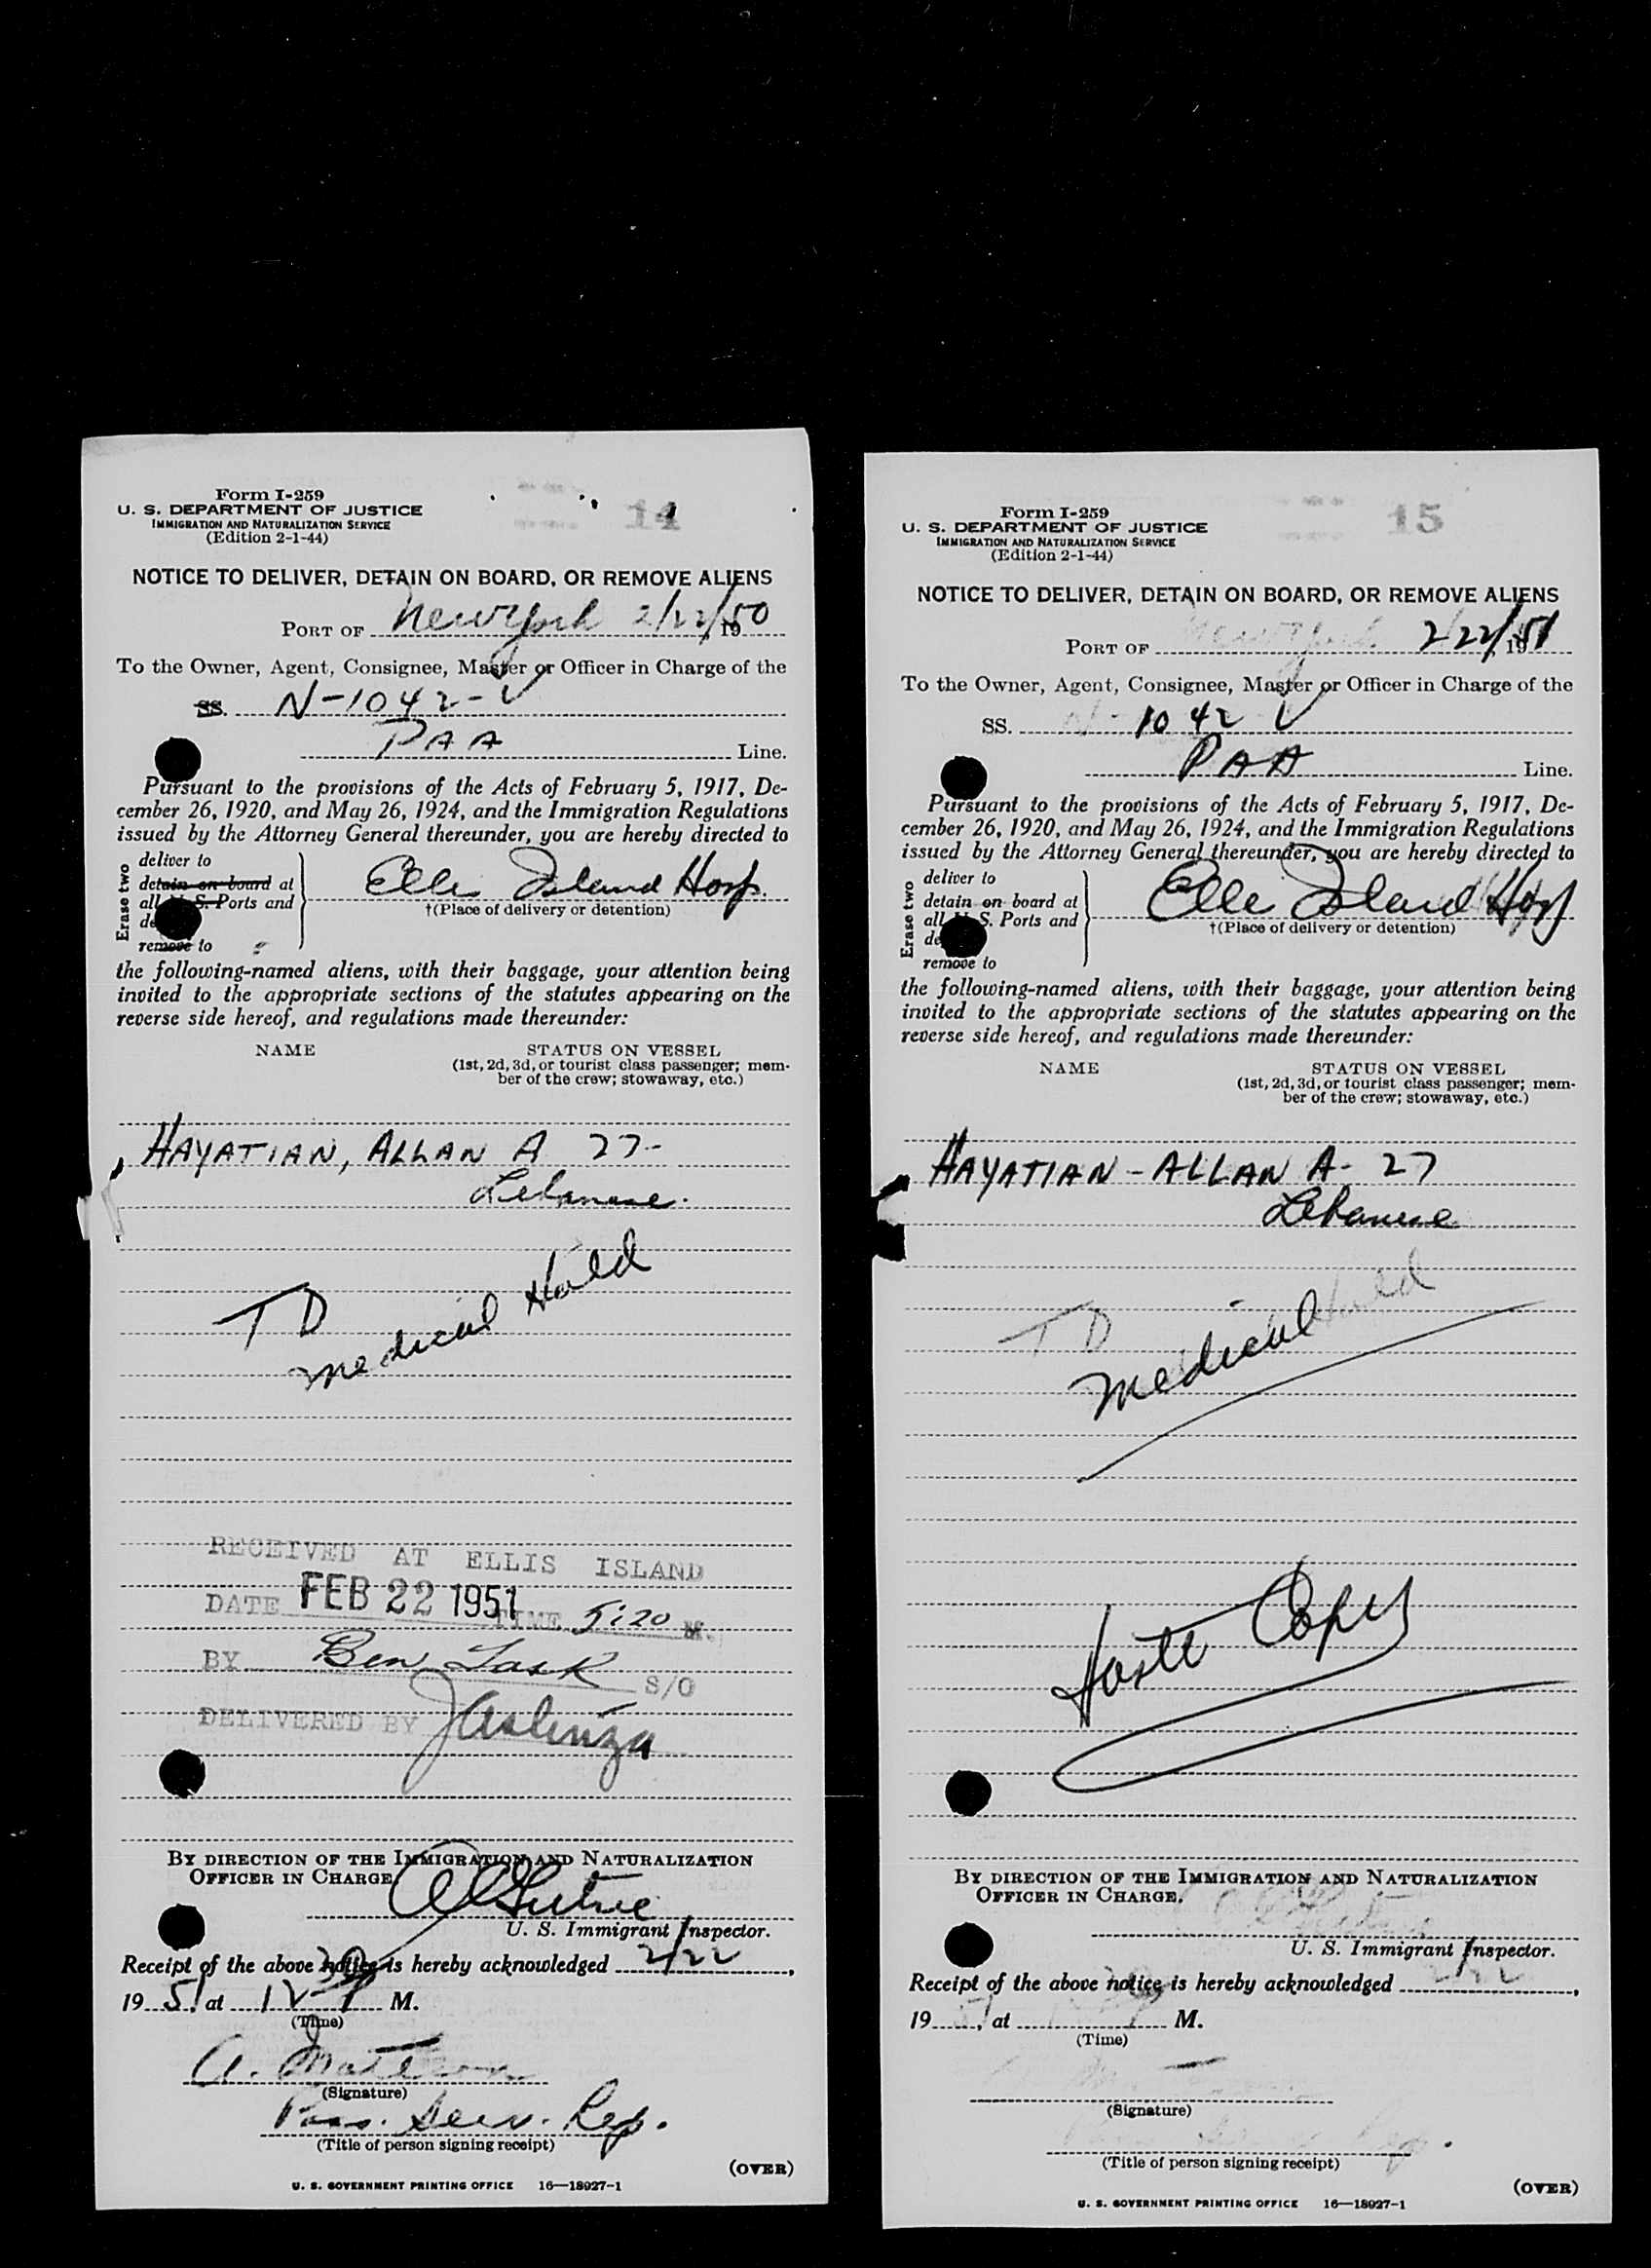 Form I-259
U. S. DEPARTMENT OF JUSTICE
IMMIGRATION AND NATURALIZATION SERVICE
(Edition 2-1-44)
14
NOTICE TO DELIVER, DETAIN ON BOARD, OR REMOVE ALIENS
PORT OF New York 2/22/1950
To the Owner, Agent, Consignee, Master or Officer in Charge of the
SS. N-1042-V
PAA Line.
Pursuant to the provisions of the Acts of February 5, 1917, De-
cember 26, 1920, and May 26, 1924, and the Immigration Regulations
issued by the Attorney General thereunder, you are hereby directed to
Erase two
deliver to
detain on board at
all U. S. Ports and
de
remove to
Elle Island Hosp.
†(Place of delivery or detention)
the following-named aliens, with their baggage, your attention being
invited to the appropriate sections of the statutes appearing on the
reverse side hereof, and regulations made thereunder:
NAME STATUS ON VESSEL
(1st, 2d, 3d, or tourist class passenger; mem-
ber of the crew; stowaway, etc.)
HAYATIAN, ALLAN A 27-
Lebanese.
TD
Medical Hold
RECEIVED AT ELLIS ISLAND
DATE FEB 22 1951 TIME 5:20 M.
BY Ben S/O
DELIVERED BY
BY DIRECTION OF THE IMMIGRATION AND NATURALIZATION
OFFICER IN CHARGE
U. S. Immigrant Inspector.
Receipt of the above notice is hereby acknowledged 2/22,
1951, at 12 M.
(Time)
A.
(Signature)
Pass. Serv. Rep.
(Title of person signing receipt)
(OVER)
U. S. GOVERNMENT PRINTING OFFICE 16—18927-1
Form I-259
U. S. DEPARTMENT OF JUSTICE
IMMIGRATION AND NATURALIZATION SERVICE
(Edition 2-1-44)
15
NOTICE TO DELIVER, DETAIN ON BOARD, OR REMOVE ALIENS
PORT OF New York 2/22/1951
To the Owner, Agent, Consignee, Master or Officer in Charge of the
SS. N-1042 V
PAA Line.
Pursuant to the provisions of the Acts of February 5, 1917, De-
cember 26, 1920, and May 26, 1924, and the Immigration Regulations
issued by the Attorney General thereunder, you are hereby directed to
Erase two
deliver to
detain on board at
all U. S. Ports and
de
remove to
Elle Island Hosp
†(Place of delivery or detention)
the following-named aliens, with their baggage, your attention being
invited to the appropriate sections of the statutes appearing on the
reverse side hereof, and regulations made thereunder:
NAME STATUS ON VESSEL
(1st, 2d, 3d, or tourist class passenger; mem-
ber of the crew; stowaway, etc.)
HAYATIAN - ALLAN A- 27
Lebanese
TD
Medical Hold
Copy
BY DIRECTION OF THE IMMIGRATION AND NATURALIZATION
OFFICER IN CHARGE.
U. S. Immigrant Inspector.
Receipt of the above notice is hereby acknowledged 2/22,
1951, at M.
(Time)
(Signature)
(Title of person signing receipt)
(OVER)
U. S. GOVERNMENT PRINTING OFFICE 16—18927-1